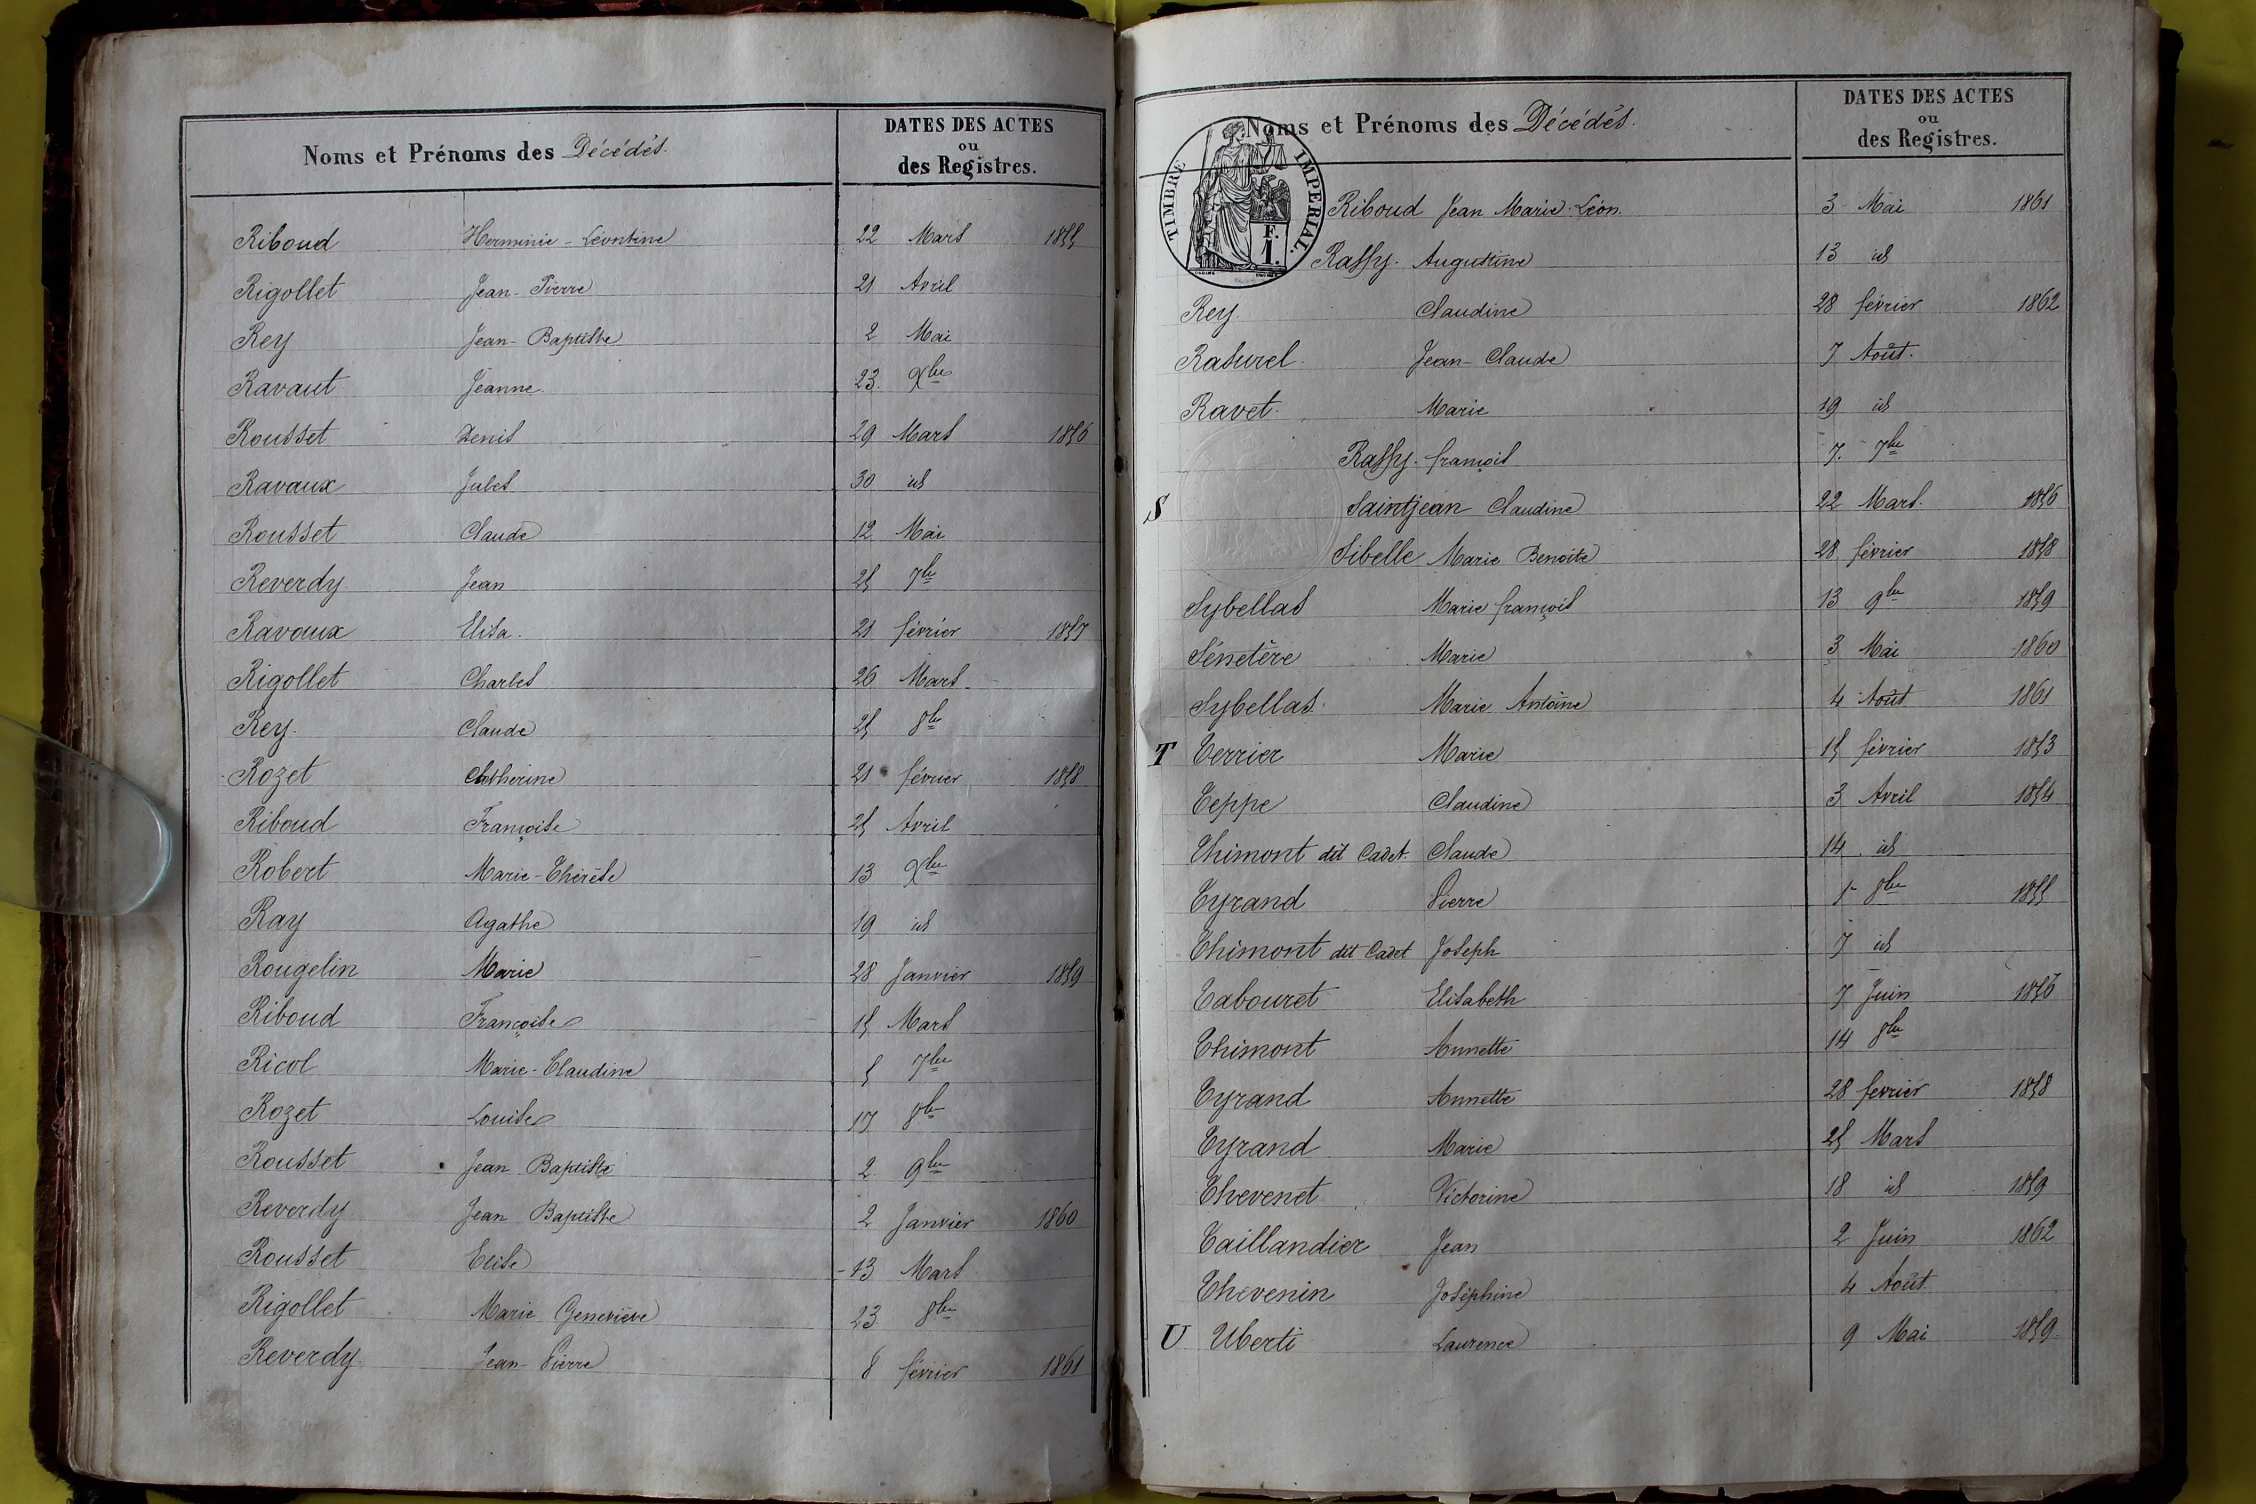 Noms et Prénoms des Décédés.
DATES DES ACTES
ou
des Registres.
Riboud Herminie - Léontine 22 Mars 1855
Rigollet Jean - Pierre 21 Avril
Rey Jean - Baptiste 2 Mai
Ravaut Jeanne 23 Xbre
Rousset Denis 29 Mars 1856
Ravaux Jules 30 id
Rousset Claude 12 Mai
Reverdy Jean 25 7bre
Ravaux Elisa. 21 février 1857
Rigollet Charles 26 Mars
Rey Claude 25 8bre
Rozet Catherine 21 février 1858
Riboud Françoise 25 Avril
Robert Marie - Thérèse 13 Xbre
Ray Agathe 19 id
Rougelin Marie 28 Janvier 1859
Riboud Françoise 15 Mars
Ricol Marie - Claudine 5 7bre
Rozet Louise 17 8bre
Rousset Jean Baptiste 2 9bre
Reverdy Jean Baptiste 2 Janvier 1860
Rousset Elise 13 Mars
Rigollet Marie Geneviève 23 8bre
Reverdy Jean - Pierre 8 février 1861
Noms et Prénoms des Décédés.
DATES DES ACTES
ou
des Registres.
TIMBRE IMPERIAL.
F.
1.
Riboud Jean Marie Léon. 3 Mai 1861
Raffy. Augustine 13 id
Rey Claudine 28 février 1862
Rasurel Jean - Claude 7 Août.
Ravet Marie 19 id
Raffy. françois 7. 7bre
S Saintjean Claudine 22 Mars. 1856
Sibelle Marie Benoite 28 février 1858
Sybellas Marie françois 13 9bre 1859
Sénetère Marie 3 Mai 1860
Sybellas Marie Antoine 4 Août 1861
T Terrier Marie 15 février 1853
Teppe Claudine 3 Avril 1854
Thimont dit Cadet. Claude 14 id
Tyrand Pierre 1er 8bre 1855
Thimont dit Cadet Joseph 7 id
Tabouret Elisabeth 7 Juin 1856
Thimont Annette 14 8bre
Tyrand Annette 28 fevrier 1858
Tyrand Marie 25 Mars
Thevenet Victorine 18 id 1859
Taillandier Jean 2 Juin 1862
Thevenin Joséphine 4 Août
U Uberti Laurence 9 Mai 1859